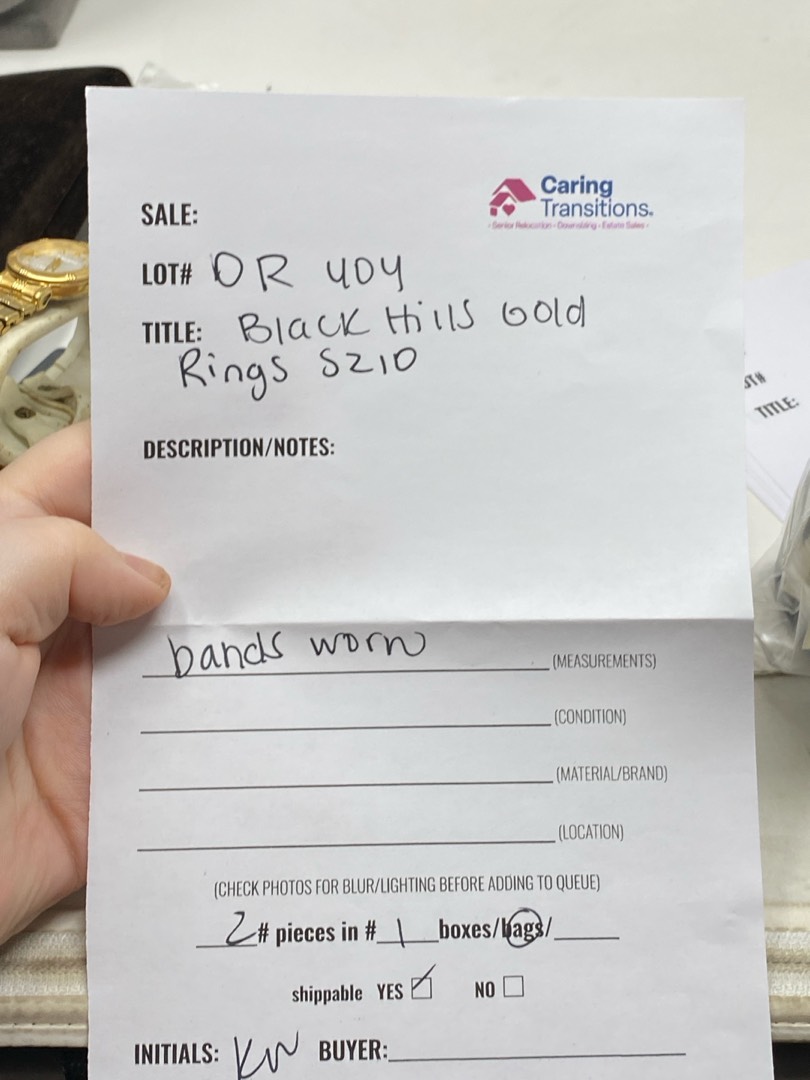 Caring
Transitions.
Senior Relocation - Downsizing - Estate Sales
SALE:
LOT# DR 404
TITLE: Black Hills Gold
Rings SZ10
DESCRIPTION/NOTES:
bands worn (MEASUREMENTS)
(CONDITION)
(MATERIAL/BRAND)
(LOCATION)
(CHECK PHOTOS FOR BLUR/LIGHTING BEFORE ADDING TO QUEUE)
2 # pieces in # 1 boxes/bags/
shippable YES NO
INITIALS: KW BUYER:
TITLE: